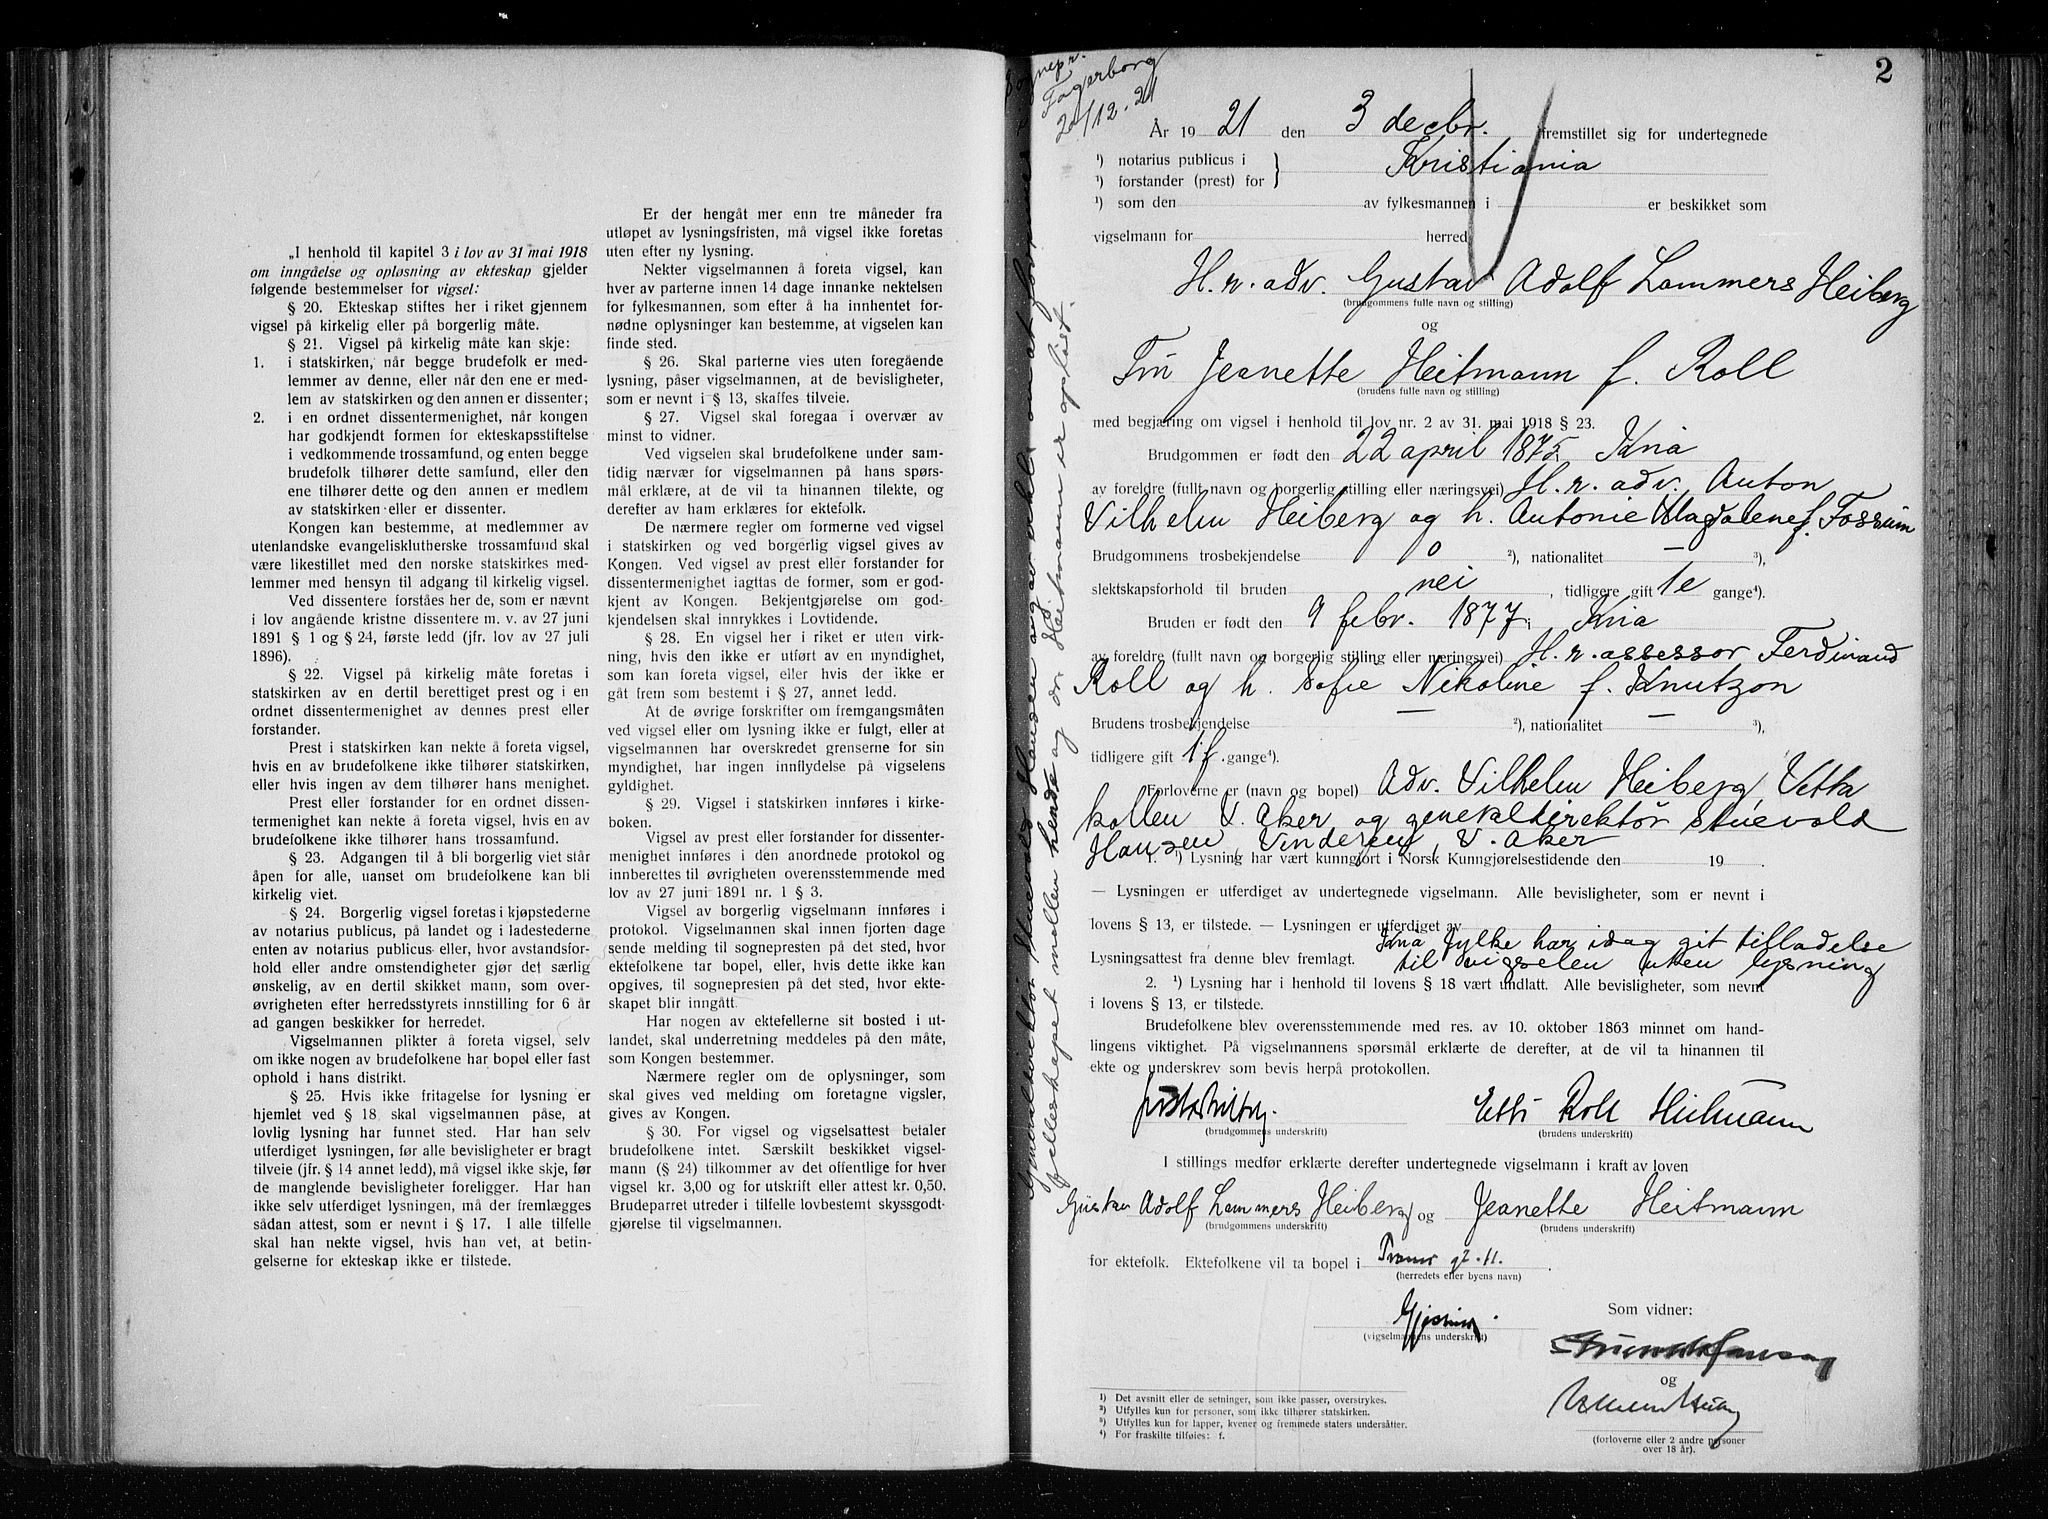 „I henhold til kapitel 3 i lov av 31 mai 1918
om inngåelse og opløsning av ekteskap gjelder
følgende bestemmelser for vigsel:
§ 20. Ekteskap stiftes her i riket gjennem
vigsel på kirkelig eller på borgerlig måte.
§ 21. Vigsel på kirkelig måte kan skje:
1. i statskirken, når begge brudefolk er med-
lemmer av denne, eller når den ene er med-
lem av statskirken og den annen er dissenter;
2. i en ordnet dissentermenighet, når kongen
har godkjendt formen for ekteskapsstiftelse
i vedkommende trossamfund, og enten begge
brudefolk tilhører dette samfund, eller den
ene tilhører dette og den annen er medlem
av statskirken eller er dissenter.
Kongen kan bestemme, at medlemmer av
utenlandske evangelisklutherske trossamfund skal
være likestillet med den norske statskirkes med-
lemmer med hensyn til adgang til kirkelig vigsel.
Ved dissentere forståes her de, som er nævnt
i lov angående kristne dissentere m. v. av 27 juni
1891 § 1 og § 24, første ledd (jfr. lov av 27 juli
1896).
§ 22. Vigsel på kirkelig måte foretas i
statskirken av en dertil berettiget prest og i en
ordnet dissentermenighet av dennes prest eller
forstander.
Prest i statskirken kan nekte å foreta vigsel,
hvis en av brudefolkene ikke tilhører statskirken,
eller hvis ingen av dem tilhører hans menighet.
Prest eller forstander for en ordnet dissen-
termenighet kan nekte å foreta vigsel, hvis en av
brudefolkene ikke tilhører hans trossamfund.
§ 23. Adgangen til å bli borgerlig viet står
åpen for alle, uanset om brudefolkene kan bli
kirkelig viet.
§ 24. Borgerlig vigsel foretas i kjøpstederne
av notarius publicus, på landet og i ladestederne
enten av notarius publicus eller, hvor avstandsfor-
hold eller andre omstendigheter gjør det særlig
ønskelig, av en dertil skikket mann, som over-
øvrigheten efter herredsstyrets innstilling for 6 år
ad gangen beskikker for herredet.
Vigselmannen plikter å foreta vigsel, selv
om ikke nogen av brudefolkene har bopel eller fast
ophold i hans distrikt.
§ 25. Hvis ikke fritagelse for lysning er
hjemlet ved § 18, skal vigselmannen påse, at
lovlig lysning har funnet sted. Har han selv
utferdiget lysningen, før alle bevisligheter er bragt
tilveie (jfr. § 14 annet ledd), må vigsel ikke skje, før
de manglende bevisligheter foreligger. Har han
ikke selv utferdiget lysningen, må der fremlægges
sådan attest, som er nevnt i § 17. I alle tilfelle
skal han nekte vigsel, hvis han vet, at betin-
gelserne for ekteskap ikke er tilstede.
Er der hengåt mer enn tre måneder fra
utløpet av lysningsfristen, må vigsel ikke foretas
uten efter ny lysning.
Nekter vigselmannen å foreta vigsel, kan
hver av parterne innen 14 dage innanke nektelsen
for fylkesmannen, som efter å ha innhentet for-
nødne oplysninger kan bestemme, at vigselen kan
finde sted.
§ 26. Skal parterne vies uten foregående
lysning, påser vigselmannen, at de bevisligheter,
som er nevnt i § 13, skaffes tilveie.
§ 27. Vigsel skal foregaa i overvær av
minst to vidner.
Ved vigselen skal brudefolkene under sam-
tidig nærvær for vigselmannen på hans spørs-
mål erklære, at de vil ta hinannen tilekte, og
derefter av ham erklæres for ektefolk.
De nærmere regler om formerne ved vigsel
i statskirken og ved borgerlig vigsel gives av
Kongen. Ved vigsel av prest eller forstander for
dissentermenighet iagttas de former, som er god-
kjent av Kongen. Bekjentgjørelse om god-
kjendelsen skal innrykkes i Lovtidende.
§ 28. En vigsel her i riket er uten virk-
ning, hvis den ikke er utført av en myndighet,
som kan foreta vigsel, eller hvis der ikke er
gåt frem som bestemt i § 27, annet ledd.
At de øvrige forskrifter om fremgangsmåten
ved vigsel eller om lysning ikke er fulgt, eller at
vigselmannen har overskredet grenserne for sin
myndighet, har ingen innflydelse på vigselens
gyldighet.
§ 29. Vigsel i statskirken innføres i kirke-
boken.
Vigsel av prest eller forstander for dissenter-
menighet innføres i den anordnede protokol og
innberettes til øvrigheten overensstemmende med
lov av 27 juni 1891 nr. 1 § 3.
Vigsel av borgerlig vigselmann innføres i
protokol. Vigselmannen skal innen fjorten dage
sende melding til sognepresten på det sted, hvor
ektefolkene tar bopel, eller, hvis dette ikke kan
opgives, til sognepresten på det sted, hvor ekte-
skapet blir inngått.
Har nogen av ektefellerne sit bosted i ut-
landet, skal underretning meddeles på den måte,
som Kongen bestemmer.
Nærmere regler om de oplysninger, som
skal gives ved melding om foretagne vigsler,
gives av Kongen.
§ 30. For vigsel og vigselsattest betaler
brudefolkene intet. Særskilt beskikket vigsel-
mann (§ 24) tilkommer av det offentlige for hver
vigsel kr. 3,00 og for utskrift eller attest kr. 0,50.
Brudeparret utreder i tilfelle lovbestemt skyssgodt-
gjørelse til vigselmannen.
Sognepr.
Fagerborg
20/12-21
2
År 1921 den 3 decbr. fremstillet sig for undertegnede
¹) notarius publicus i } Kristiania
¹) forstander (prest) for
¹) som den av fylkesmannen i er beskikket som
vigselmann for herred
H.r.adv. Gustav Adolf Lammers Heiberg
(brudgommens fulle navn og stilling)
og
Fru Jeanette Heitmann f. Roll
(brudens fulle navn og stilling)
med begjæring om vigsel i henhold til lov nr. 2 av 31. mai 1918 § 23.
Brudgommen er født den 22 april 1875 Kria
av foreldre (fullt navn og borgerlig stilling eller næringsvei) H.r. adv. Anton
Vilhelm Heiberg og h. Antonie Magdalene f. Fossum
Brudgommens trosbekjendelse o ²), nationalitet — ³),
slektskapsforhold til bruden nei, tidligere gift 1e gange⁴).
Bruden er født den 9 febr. 1877 Kria
av foreldre (fullt navn og borgerlig stilling eller næringsvei) H.r.assessor Ferdinand
Roll og h. Sofie Nikoline f. Knutzon
Brudens trosbekjendelse — ²), nationalitet — ³),
tidligere gift 1 f. gange⁴).
Forloverne er (navn og bopel) Adv. Vilhelm Heiberg, Vetta
kollen V. Aker og generaldirektør Stuevold
Hansen, Vinderen, V. Aker
1. ¹) Lysning har vært kunngjort i Norsk Kunngjørelsestidende den 19 .
— Lysningen er utferdiget av undertegnede vigselmann. Alle bevisligheter, som er nevnt i
lovens § 13, er tilstede. — Lysningen er utferdiget av
Lysningsattest fra denne blev fremlagt. Kria fylke har idag git tilladelse
til vigselen uten lysning
2. ¹) Lysning har i henhold til lovens § 18 vært undlatt. Alle bevisligheter, som nevnt
i lovens § 13, er tilstede.
Brudefolkene blev overensstemmende med res. av 10. oktober 1863 minnet om hand-
lingens viktighet. På vigselmannens spørsmål erklærte de derefter, at de vil ta hinannen til
ekte og underskrev som bevis herpå protokollen.
Etti Roll Heitmann
(brudgommens underskrift) (brudens underskrift)
I stillings medfør erklærte derefter undertegnede vigselmann i kraft av loven
Gustav Adolf Lammers Heiberg og Jeanette Heitmann
(brudgommens underskrift) (brudens underskrift)
for ektefolk. Ektefolkene vil ta bopel i gt. 11.
(herredets eller byens navn)
Som vidner:
(vigselmannens underskrift)
og
(forloverne eller 2 andre personer
over 18 år).
¹) Det avsnitt eller de setninger, som ikke passer, overstrykes.
²) Utfylles kun for personer, som ikke tilhører statskirken.
³) Utfylles kun for lapper, kvener og fremmede staters undersåtter.
⁴) For fraskilte tilføies: f.
Generaldirektør Stuevold Hansen
fælleskapet mellem hende og dr. Heitmann er opløst.